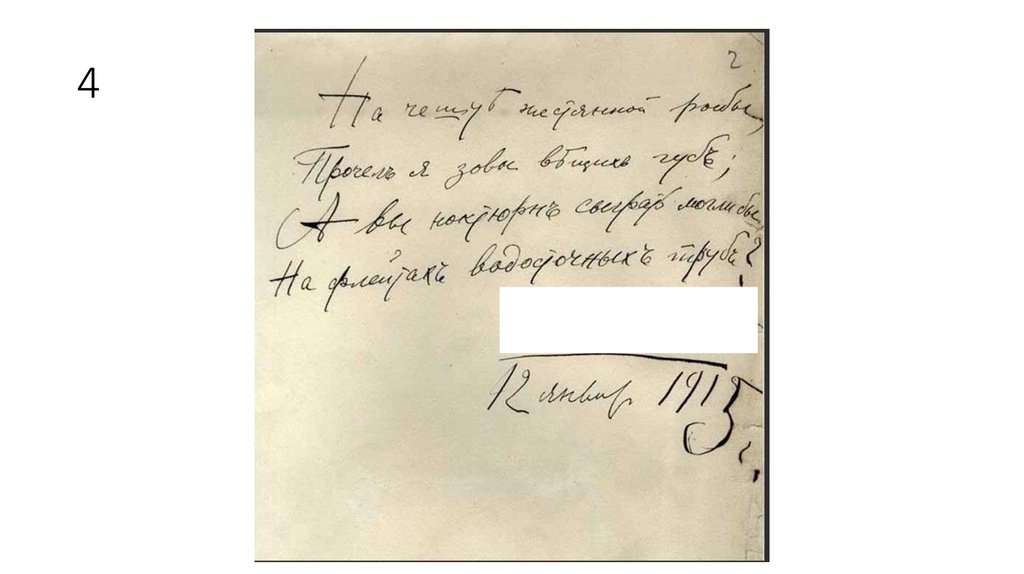 4
2
На чешуѣ жестянной рыбы,
Прочелъ я зовы вѣщихъ губъ;
А вы ноктюрнъ сыграть могли бы
На флейтахъ водосточныхъ трубъ?
12 январ 1915